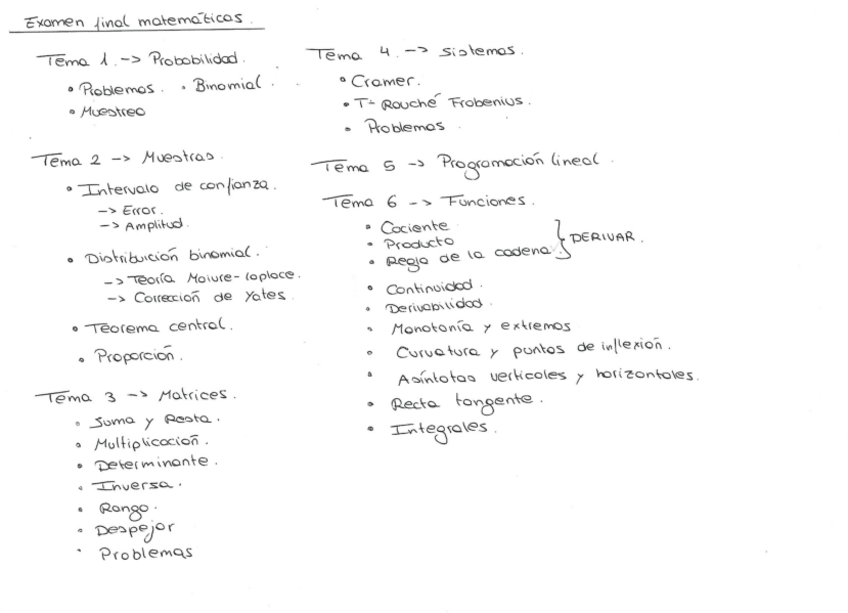 Examen final matemáticas.
Tema 1 -> Probabilidad.
• Problemas. • Binomial.
• Muestreo
Tema 2 -> Muestras.
• Intervalo de confianza.
-> Error.
-> Amplitud.
• Distribución binomial.
-> Teoría Moivre-Laplace.
-> Corrección de Yates.
• Teorema central.
• Proporción.
Tema 3 -> Matrices.
• Suma y Resta.
• Multiplicación.
• Determinante.
• Inversa.
• Rango.
• Despejar
• Problemas
Tema 4 -> Sistemas.
• Cramer.
• Tª Rouché Frobenius.
• Problemas.
Tema 5 -> Programación lineal.
Tema 6 -> Funciones.
• Cociente
• Producto
• Regla de la cadena } DERIVAR.
• Continuidad.
• Derivabilidad.
• Monotonía y extremos
• Curvatura y puntos de inflexión.
• Asíntotas verticales y horizontales.
• Recta tangente.
• Integrales.